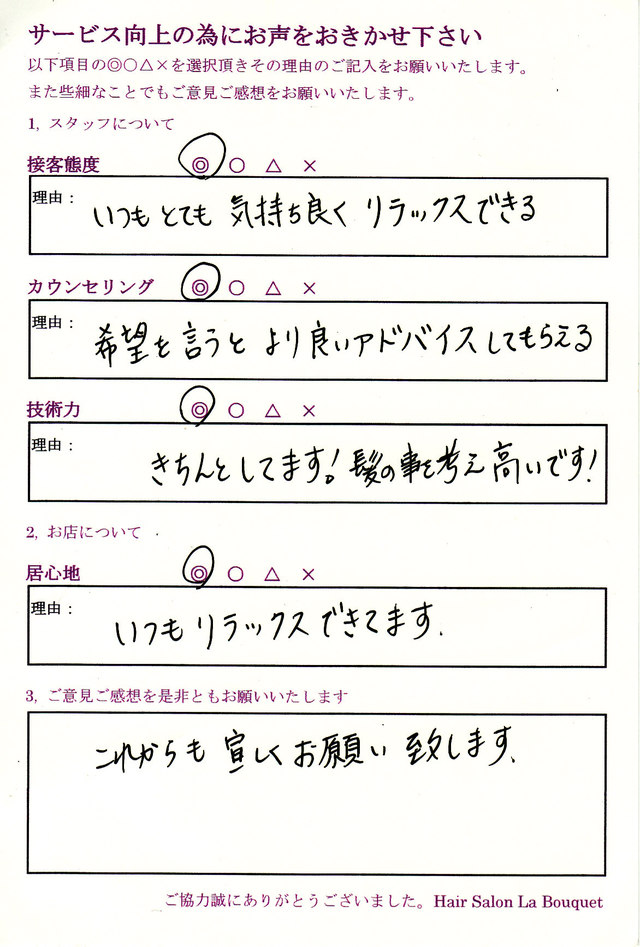 サービス向上の為にお声をおきかせ下さい
以下項目の◎○△×を選択頂きその理由のご記入をお願いいたします。
また些細なことでもご意見ご感想をお願いいたします。
1, スタッフについて
接客態度 ◎ ○ △ ×
理由：
いつも とても 気持ち良く リラックスできる
カウンセリング ◎ ○ △ ×
理由：
希望を 言うと より良いアドバイスしてもらえる
技術力 ◎ ○ △ ×
理由：
きちんとしてます! 髪の事を考え 高いです!
2, お店について
居心地 ◎ ○ △ ×
理由：
いつもリラックスできてます.
3, ご意見ご感想を是非ともお願いいたします
これからも 宜しくお願い 致します、
ご協力誠にありがとうございました。Hair Salon La Bouquet